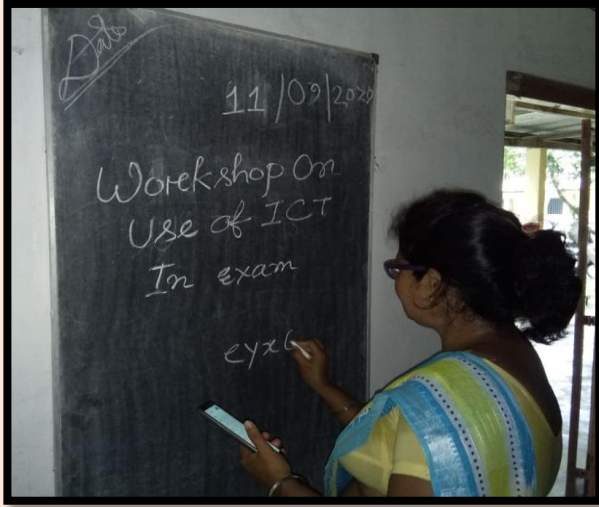 Date
11/09/2020
Workshop On
Use of ICT
In exam
eyx